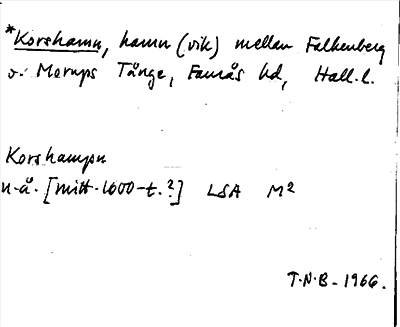 *Korshamn, hamn (vik) mellan Falkenberg
o. Morups Tånge, Faurås hd, Hall. l.
Korshampn
u.å. [mitt. 1600-t.?] LSA M²
T.N.B. 1966.